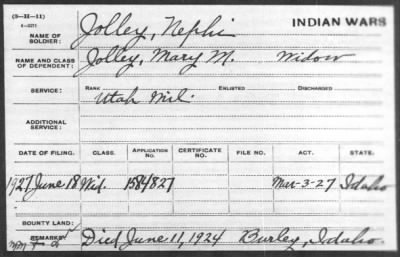 (3-II-11)
INDIAN WARS
NAME OF SOLDIER: Jolley, Nephi
NAME AND CLASS OF DEPENDENT: Jolley, Mary M. Widow
SERVICE: RANK ENLISTED DISCHARGED
Utah Mil.
ADDITIONAL SERVICE:
DATE OF FILING. CLASS. APPLICATION No. CERTIFICATE No. FILE NO. ACT. STATE.
1927 June 18 Wid. 1584827 Mar-3-27 Idaho
BOUNTY LAND:
REMARKS: Died June 11, 1924 Burley, Idaho.